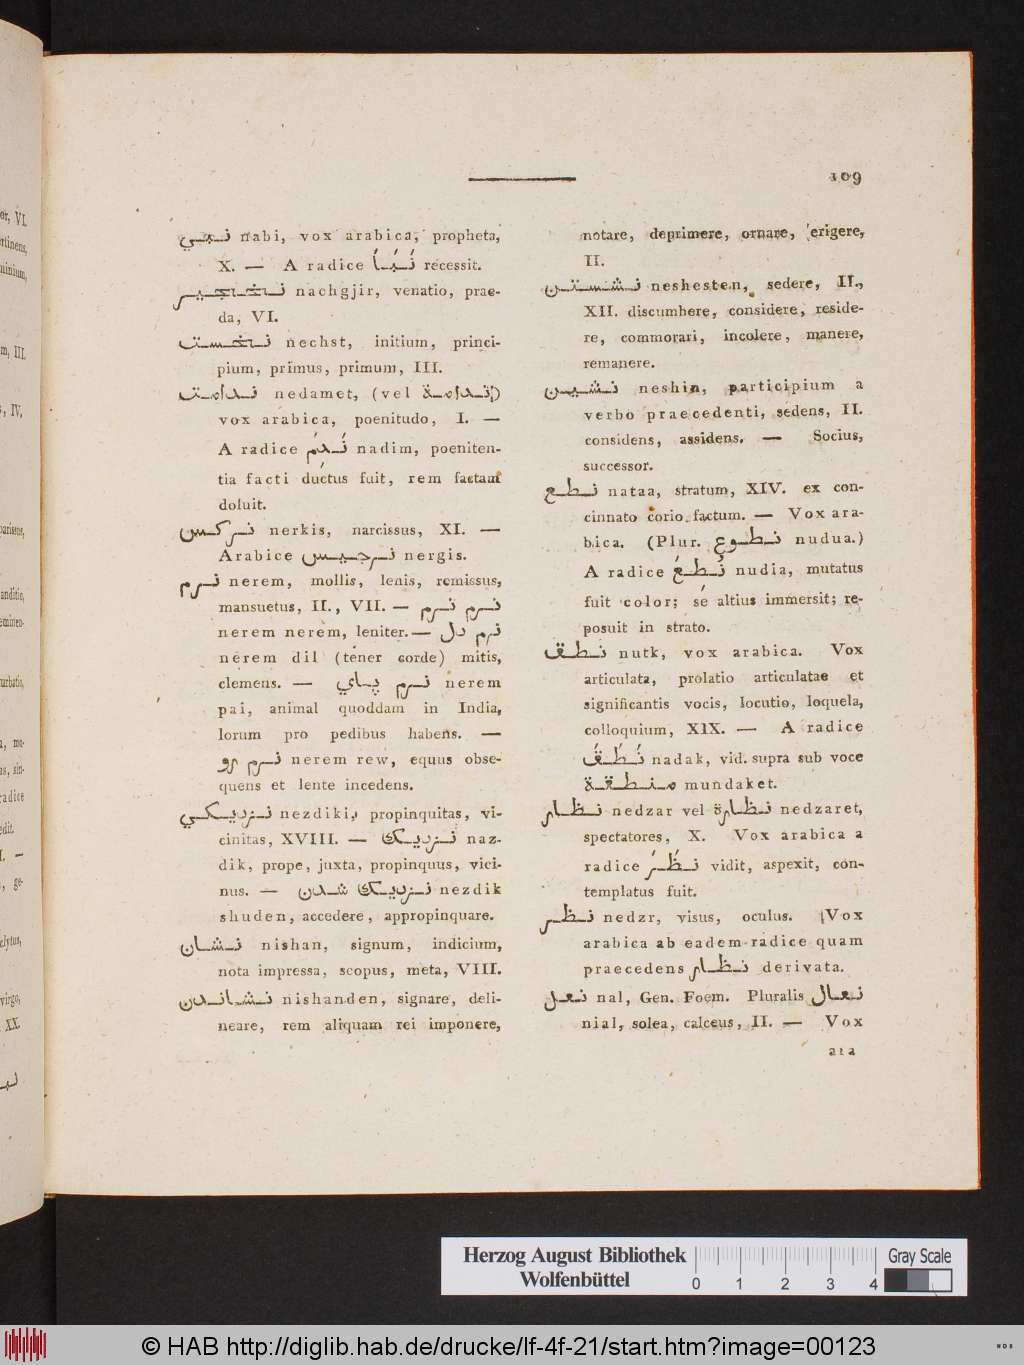 109
نبي nabi, vox arabica, propheta,
X. — A radice نَبَأَ recessit.
نخجير nachgjir, venatio, prae-
da, VI.
نخست nechst, initium, princi-
pium, primus, primum, III.
ندامت nedamet, (vel ندامة)
vox arabica, poenitudo, I. —
A radice نَدِمَ nadim, poeniten-
tia facti ductus fuit, rem factam
doluit.
نركس nerkis, narcissus, XI. —
Arabice نرجيس nergis.
نرم nerem, mollis, lenis, remissus,
mansuetus, II., VII. — نرم نرم
nerem nerem, leniter. — نرم دل
nerem dil (tener corde) mitis,
clemens. — نرم پاي nerem
pai, animal quoddam in India,
lorum pro pedibus habens. —
نرم رو nerem rew, equus obse-
quens et lente incedens.
نزديكي nezdiki, propinquitas, vi-
cinitas, XVIII. — نزديك naz-
dik, prope, juxta, propinquus, vici-
nus. — نزديك شدن nezdik
shuden, accedere, appropinquare.
نشان nishan, signum, indicium,
nota impressa, scopus, meta, VIII.
نشاندن nishanden, signare, deli-
neare, rem aliquam rei imponere,
notare, deprimere, ornare, erigere,
II.
نشستن neshesten, sedere, II.,
XII. discumbere, considere, reside-
re, commorari, incolere, manere,
remanere.
نشين neshin, participium a
verbo praecedenti, sedens, II.
considens, assidens. — Socius,
successor.
نطع nataa, stratum, XIV. ex con-
cinnato corio factum. — Vox ara-
bica. (Plur. نطوع nudua.)
A radice نُطِعَ nudia, mutatus
fuit color; se altius immersit; re-
posuit in strato.
نطق nutk, vox arabica. Vox
articulata, prolatio articulatae et
significantis vocis, locutio, loquela,
colloquium, XIX. — A radice
نَطَقَ nadak, vid. supra sub voce
منطقة mundaket.
نظار nedzar vel نظارة nedzaret,
spectatores, X. Vox arabica a
radice نَظَرَ vidit, aspexit, con-
templatus fuit.
نظر nedzr, visus, oculus. (Vox
arabica ab eadem radice quam
praecedens نظار derivata.
نعل nal, Gen. Foem. Pluralis نعال
nial, solea, calceus, II. — Vox
ara
or, VI.
rtinens,
minium,
m, III.
, IV.
parissus,
anditio,
turbatio,
radice
edit.
I. —
, ge-
clytus,
virgo,
XX.
Herzog August Bibliothek
Wolfenbüttel
0 1 2 3 4
Gray Scale
© HAB http://diglib.hab.de/drucke/lf-4f-21/start.htm?image=00123